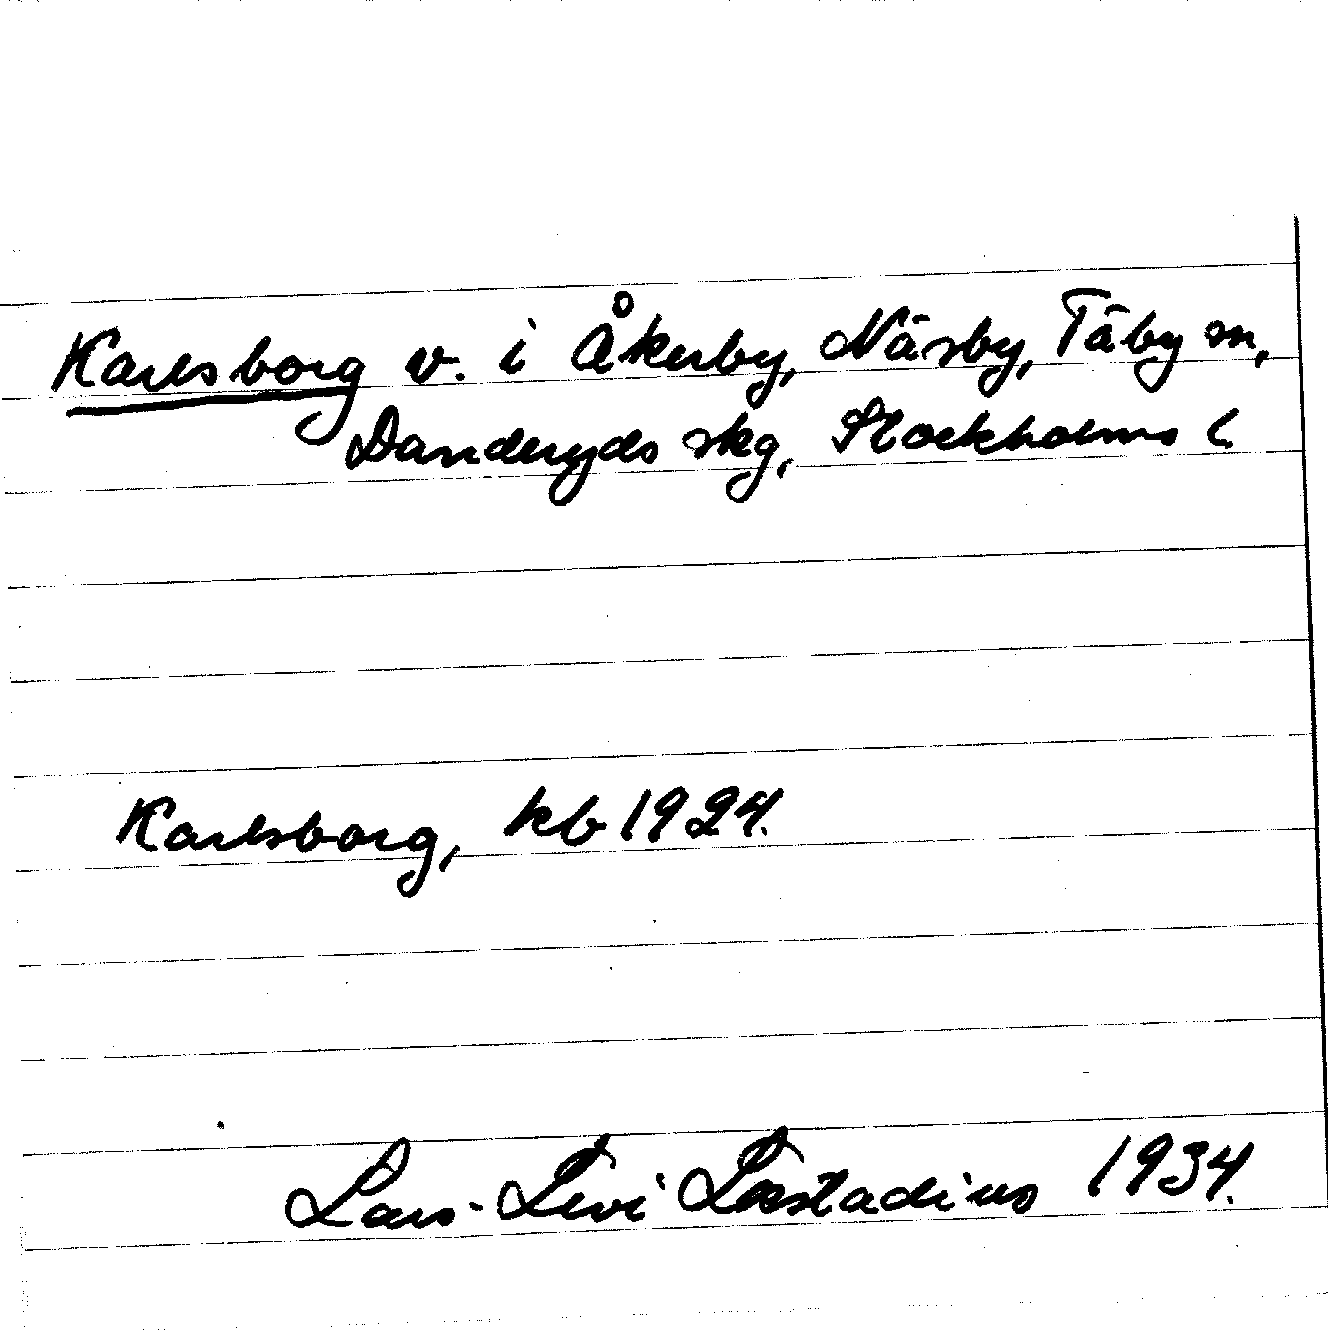 Karlsborg v. i Åkerby, Näsby, Täby sn,
Danderyds skg, Stockholms l.
Karlsborg, kb 1924.
Lars-Levi Læstadius 1934.